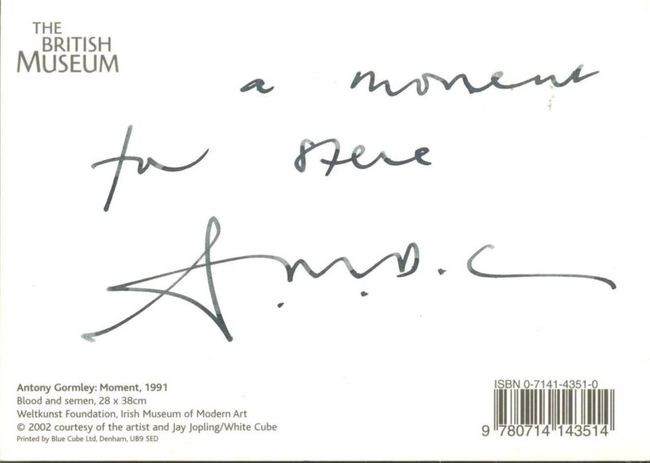 THE
BRITISH
MUSEUM
a moment
for Steve
Antony Gormley: Moment, 1991
Blood and semen, 28 x 38cm
Weltkunst Foundation, Irish Museum of Modern Art
© 2002 courtesy of the artist and Jay Jopling/White Cube
Printed by Blue Cube Ltd, Denham, UB9 5ED
ISBN 0-7141-4351-0
9 780714 143514